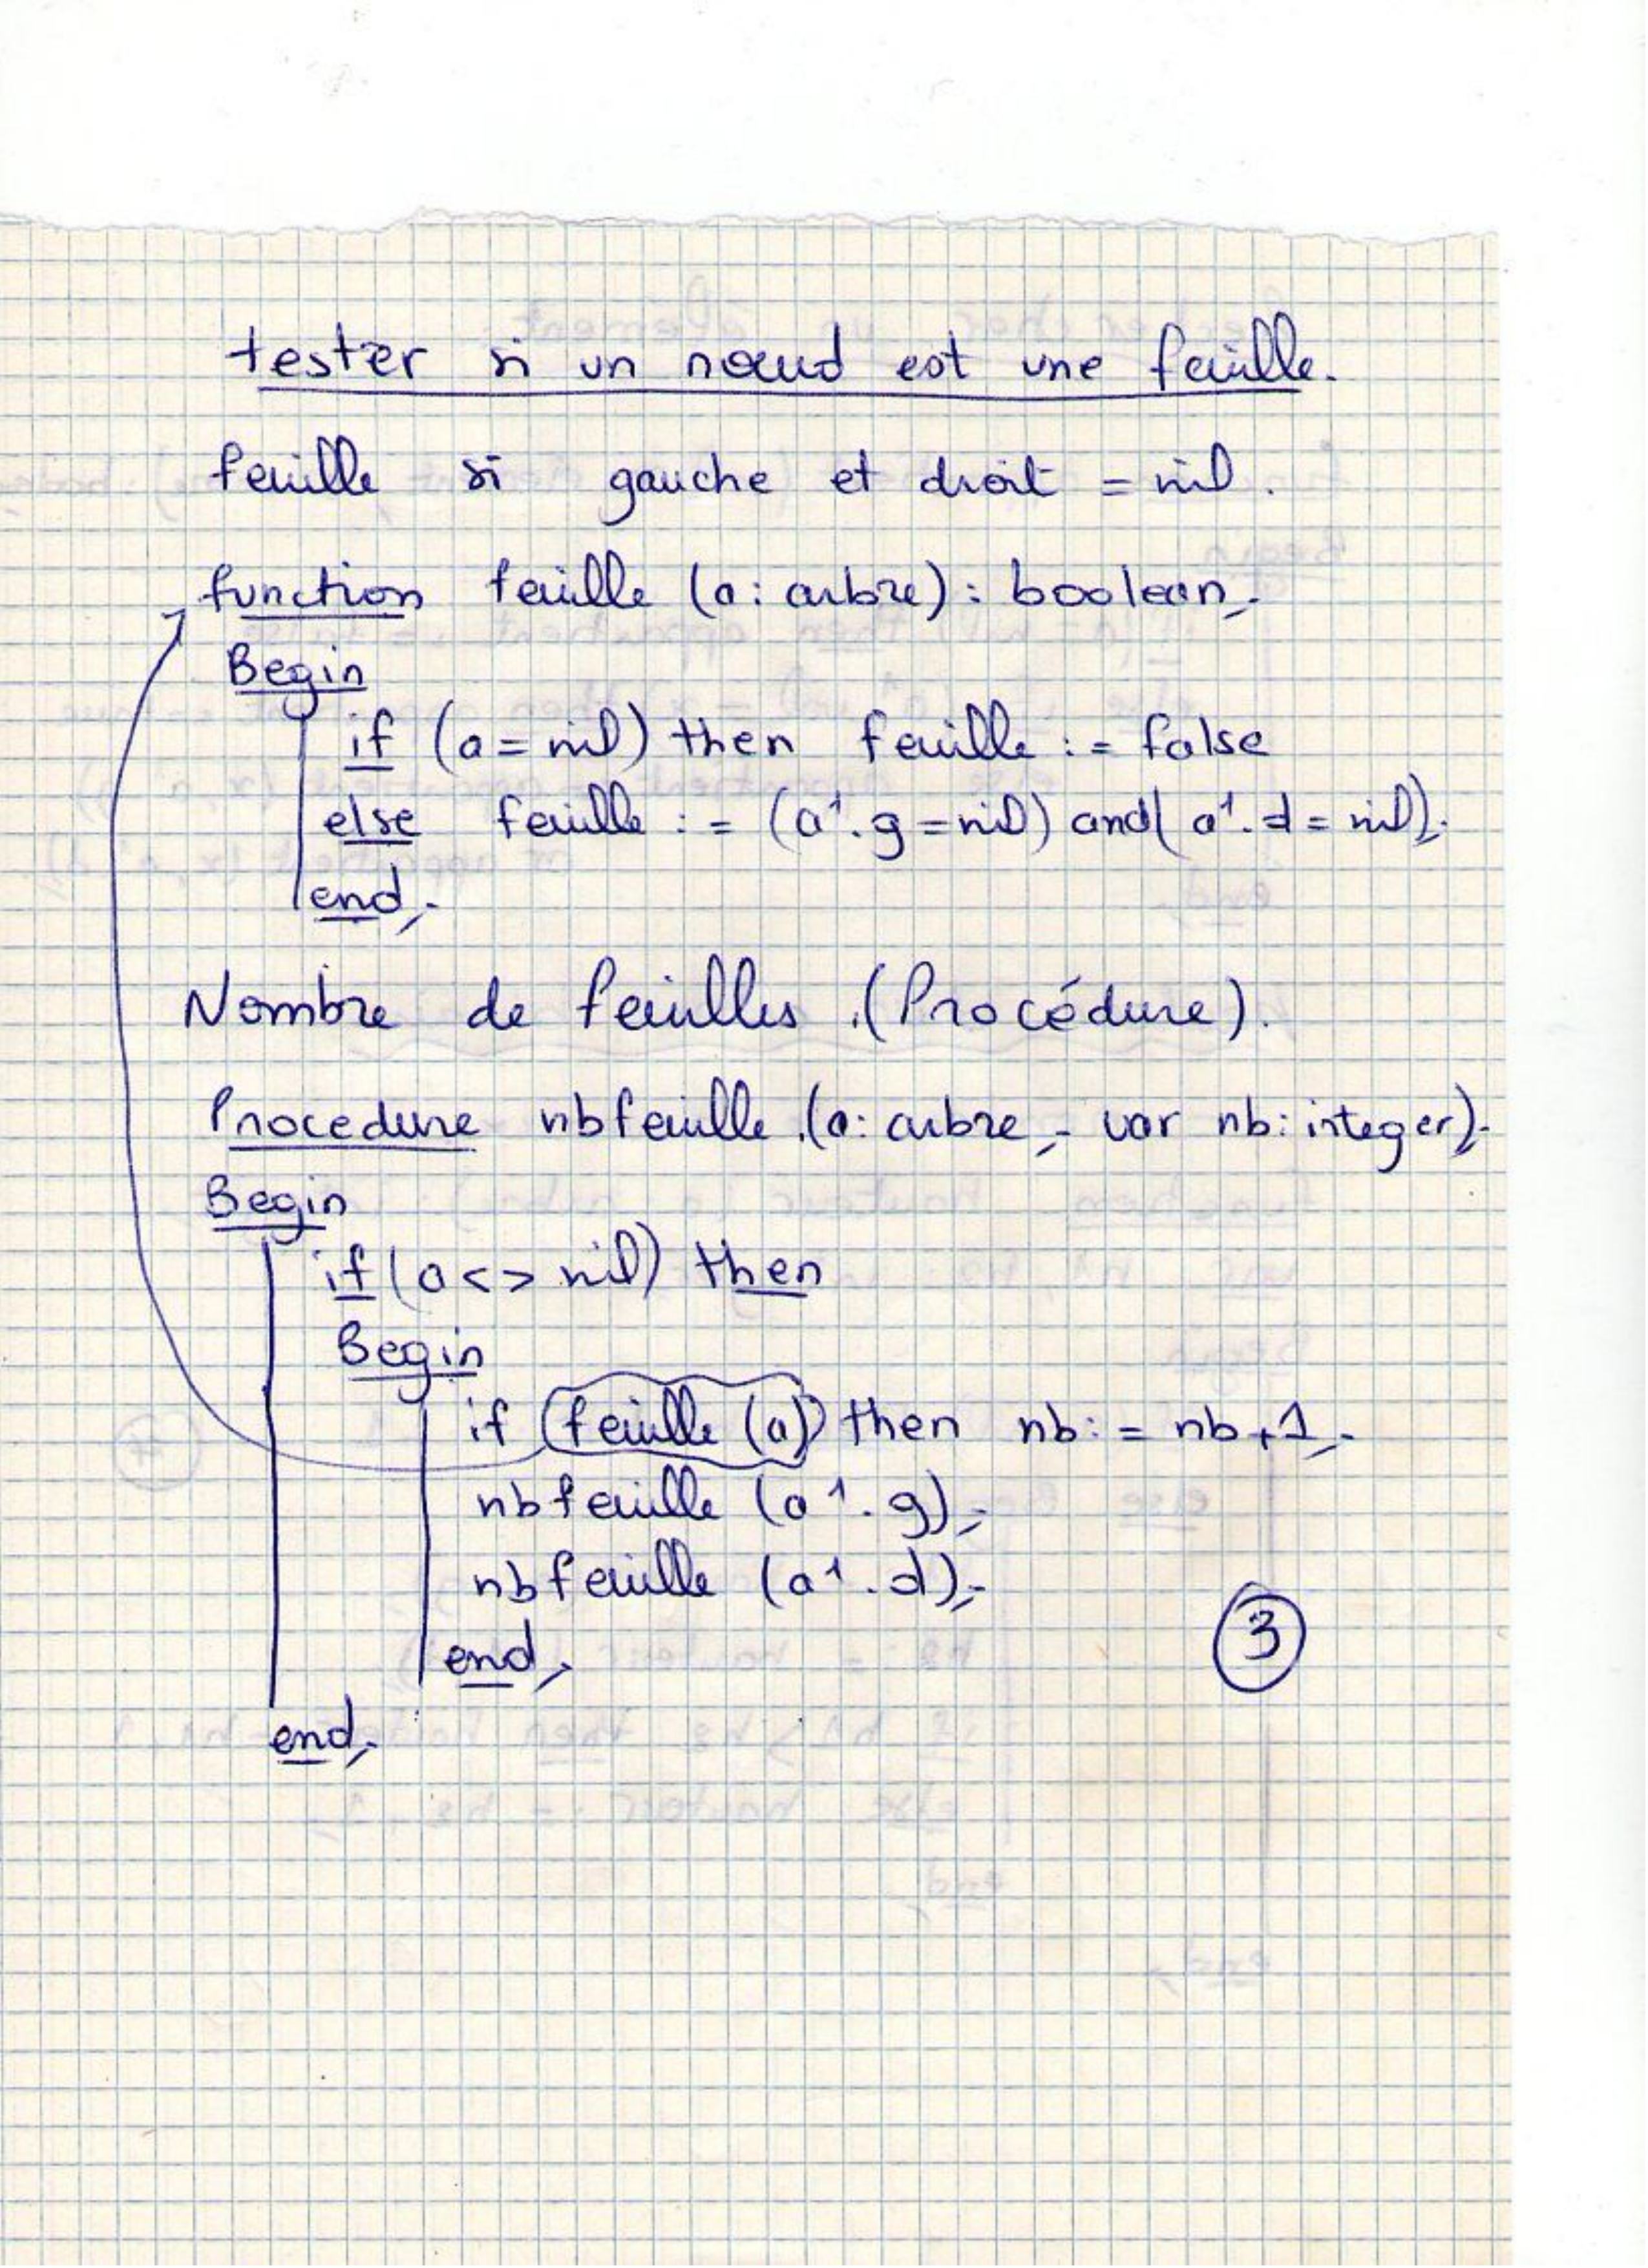 tester si un nœud est une feuille.
feuille si gauche et droit = nil.
function feuille (a: arbre): boolean;
Begin
if (a = nil) then feuille := false
else feuille := (a↑.g = nil) and (a↑.d = nil);
end;
Nombre de feuilles (Procédure).
Procedure nbfeuille (a: arbre; var nb: integer);
Begin
if (a <> nil) then
Begin
if (feuille (a)) then nb := nb + 1;
nbfeuille (a↑.g);
nbfeuille (a↑.d);
end;
3
end;